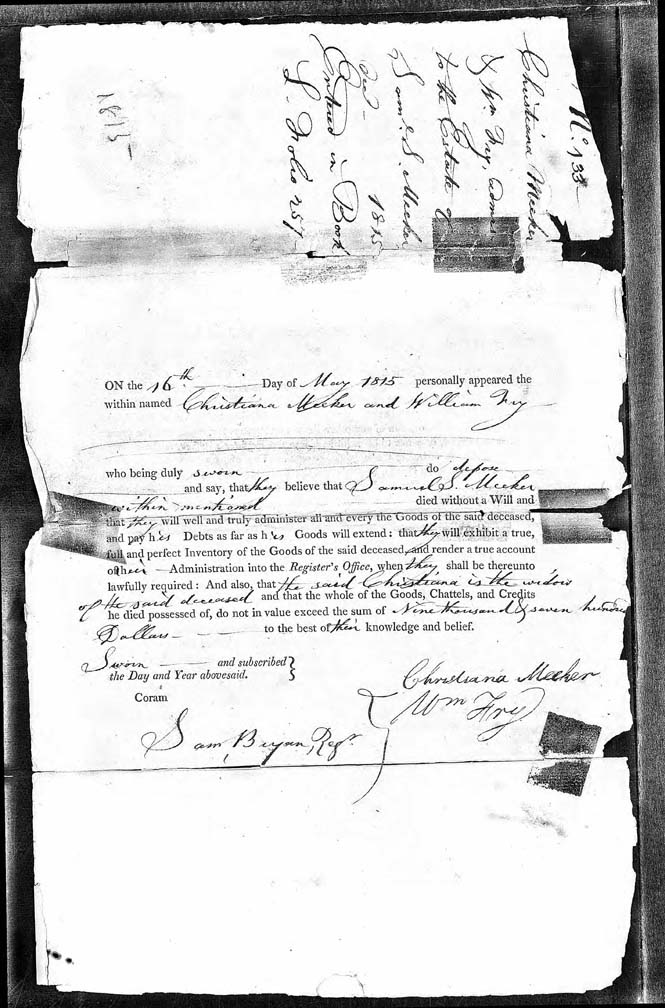 No. 133
Christiana Meeker
& Wm Fry, admrs
to the Estate of
Saml. S. Meeker
decd. 1815
Entered in Book
L. Folio 257
1815
ON the 16th. Day of May 1815 personally appeared the
within named Christiana Meeker and William Fry
who being duly sworn do depose
and say, that they believe that Samuel S. Meeker
within mentioned died without a Will and
that they will well and truly administer all and every the Goods of the said deceased,
and pay his Debts as far as his Goods will extend: that they will exhibit a true,
full and perfect Inventory of the Goods of the said deceased, and render a true account
of their Administration into the Register's Office, when they shall be thereunto
lawfully required: And also, that the said Christiana is the widow
of the said deceased and that the whole of the Goods, Chattels, and Credits
he died possessed of, do not in value exceed the sum of Nine thousand & seven hundred
Dollars to the best of their knowledge and belief.
Sworn and subscribed
the Day and Year abovesaid.
Coram
Christiana Meeker
Wm Fry
Sam, Bryan, Regr.